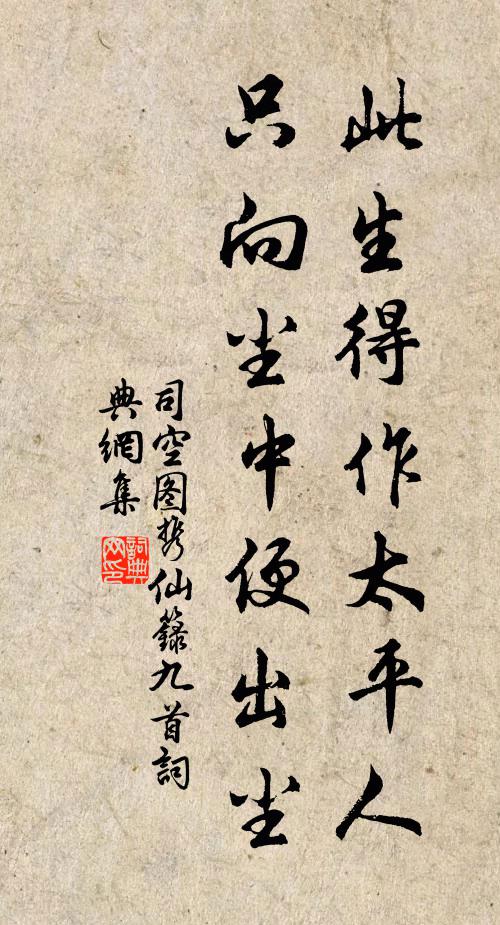 此生得作太平人
只向尘中便出尘
司空图携仙籙九首詞
典網集
詞典
网印